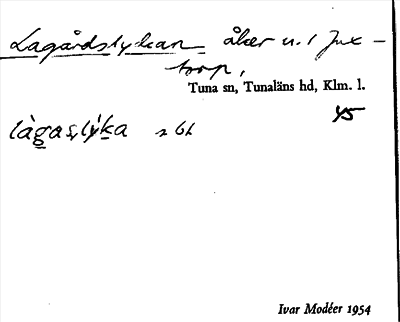 Lagårdslyckan åker u. / Jux-
torp,
Tuna sn, Tunaläns hd, Klm. l.
45
làgaslýka
Ivar Modéer 1954